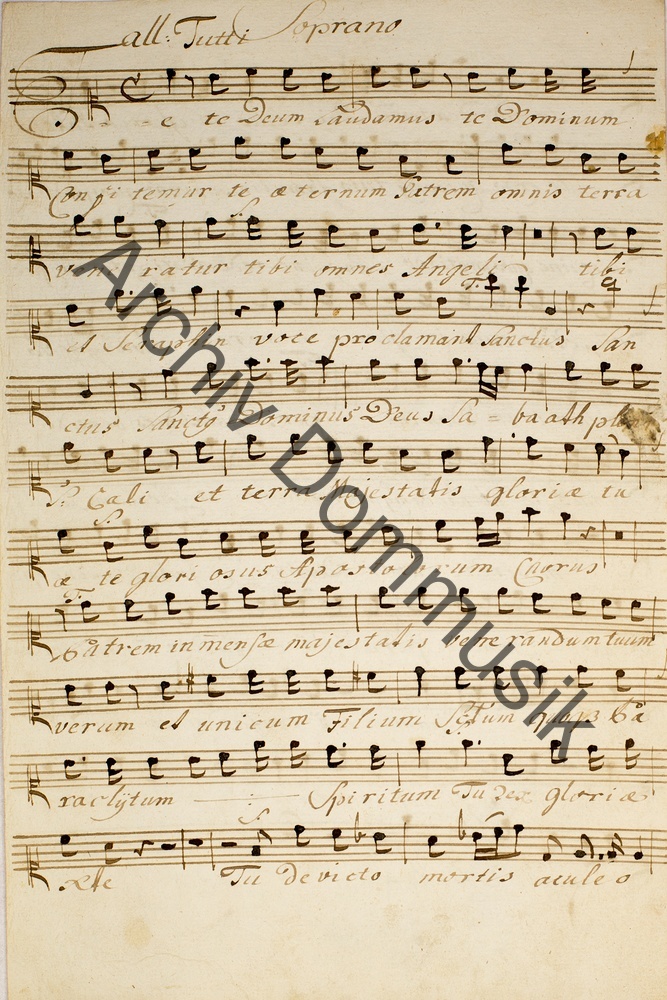 all: Tutti Soprano
e te Deum Laudamus te Dominum
Confitemur te æternum Patrem omnis terra
veneratur tibi omnes Angeli tibi
et Seraphin voce proclamant Sanctus San
ctus Sanctg Dominus Deus Sa = baoth pleni
S: Cæli et terra Majestatis gloriæ tu
æ te gloriosus Apostolorum Chorus
Patrem inmensæ majestatis venerandum tuum
verum et unicum Filium Sctum Pa
raclytum Spiritum Tu Rex gloriæ
Xte Tu devicto mortis aculeo
Archiv Dommusik